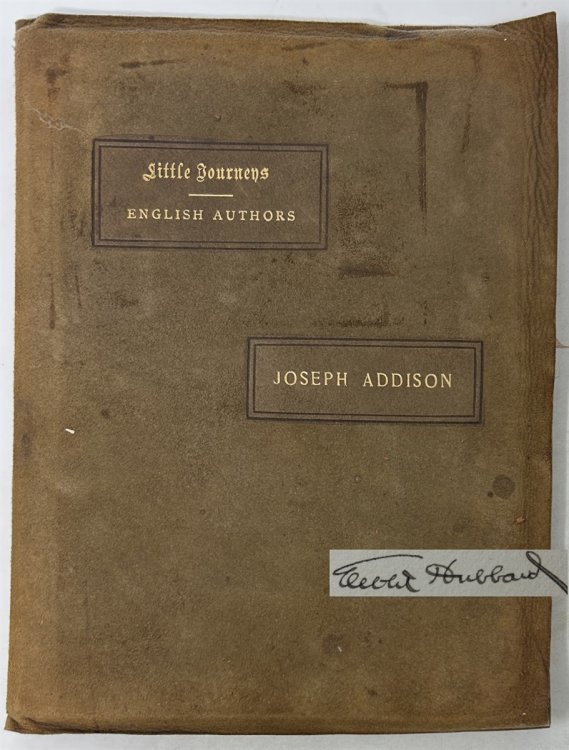 Little Journeys
ENGLISH AUTHORS
JOSEPH ADDISON
Elbert Hubbard